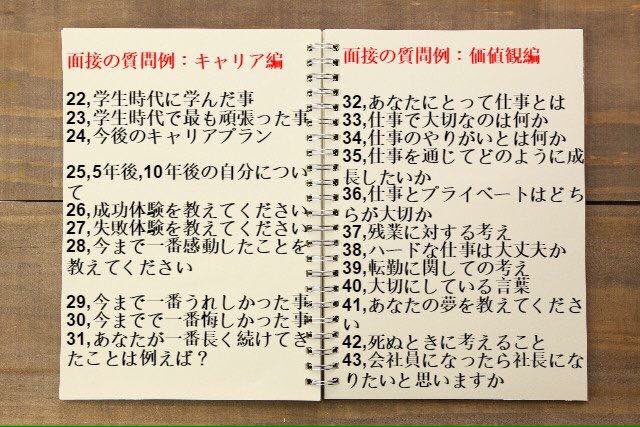 面接の質問例：キャリア編
22,学生時代に学んだ事
23,学生時代で最も頑張った事
24,今後のキャリアプラン
25,5年後,10年後の自分につい
て
26,成功体験を教えてください
27,失敗体験を教えてください
28,今まで一番感動したことを
教えてください
29,今まで一番うれしかった事
30,今までで一番悔しかった事
31,あなたが一番長く続けてき
たことは例えば？
面接の質問例：価値観編
32,あなたにとって仕事とは
33,仕事で大切なのは何か
34,仕事のやりがいとは何か
35,仕事を通じてどのように成
長したいか
36,仕事とプライベートはどち
らが大切か
37,残業に対する考え
38,ハードな仕事は大丈夫か
39,転勤に関しての考え
40,大切にしている言葉
41,あなたの夢を教えてくださ
い
42,死ぬときに考えること
43,会社員になったら社長にな
りたいと思いますか